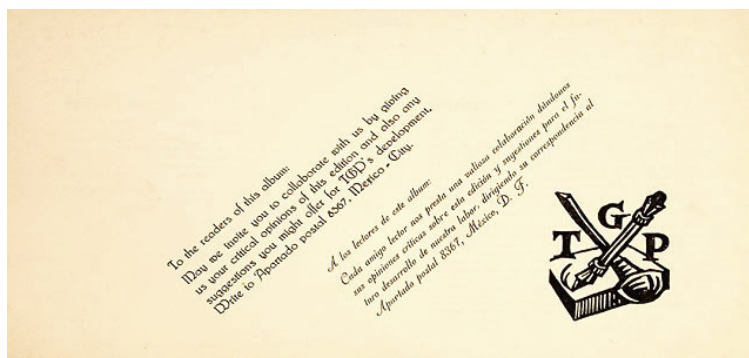 To the readers of this album:
May we invite you to collaborate with us by giving
us your critical opinions of this edition and also any
suggestions you might offer for TGP's development.
Write to Apartado postal 8367, Mexico - City.
A los lectores de este album:
Cada amigo lector nos presta una valiosa colaboración dándonos
sus opiniones críticas sobre esta edición y sugestiones para el fu-
turo desarrollo de nuestra labor, dirigiendo su correspondencia al
Apartado postal 8367, México, D. F.
T G P